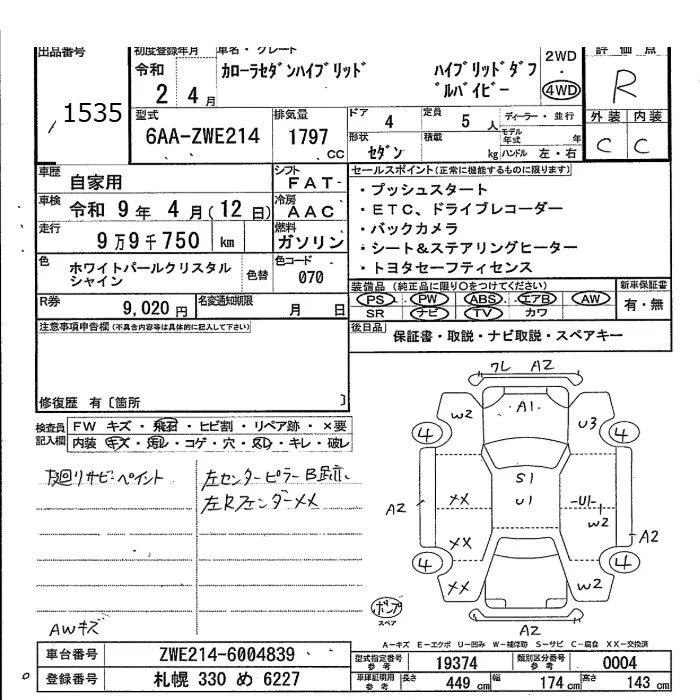 出品番号
1535
初度登録年月
令和
2 4 月
車名・グレード
カローラセダンハイブリッド
ハイブリッドダブ
ルバイビー
2WD
・
4WD
評価点
R
型式
6AA-ZWE214
排気量
1797
cc
ドア
4
定員
5 人
ディーラー・並行
モデル
年式
年
形状
セダン
積載
kg
ハンドル 左・右
外装 内装
C C
車歴
自家用
シフト
FAT
車検
令和 9 年 4 月(12 日)
冷房
AAC
走行
9万9千750 km
燃料
ガソリン
色
ホワイトパールクリスタル
シャイン
色替
色コード
070
R券
9,020 円
名変通知期限
月 日
セールスポイント(正常に機能するものに限ります)
・プッシュスタート
・ETC、ドライブレコーダー
・バックカメラ
・シート&ステアリングヒーター
・トヨタセーフティセンス
装備品(純正品に限り○をつけてください)
PS PW ABS エアB AW
SR ナビ TV カワ
新車保証書
有・無
後日品
保証書・取説・ナビ取説・スペアキー
注意事項申告欄(不具合内容等は具体的に記入して下さい)
修復歴 有〔箇所 〕
検査員
記入欄
FW キズ・飛石・ヒビ割・リペア跡・×要
内装 キズ・汚レ・コゲ・穴・スレ・キレ・破レ
下廻りサビ・ペイント
左センターピラーB
左Rフェンダー××
AWキズ
ワレ A2
W2
A1
U3
4
4
S1
U1
A2
××
U1
W2
××
A2
4
4
××
W2
ポンプ
スペア
A2
A-キズ E-エクボ U-凹み W-補修跡 S-サビ C-腐食 XX-交換済
車台番号
ZWE214-6004839
登録番号
札幌 330 め 6227
型式指定番号
参考
19374
類別区分番号
参考
0004
車庫証明用
参考
長さ
449 cm
幅
174 cm
高さ
143 cm